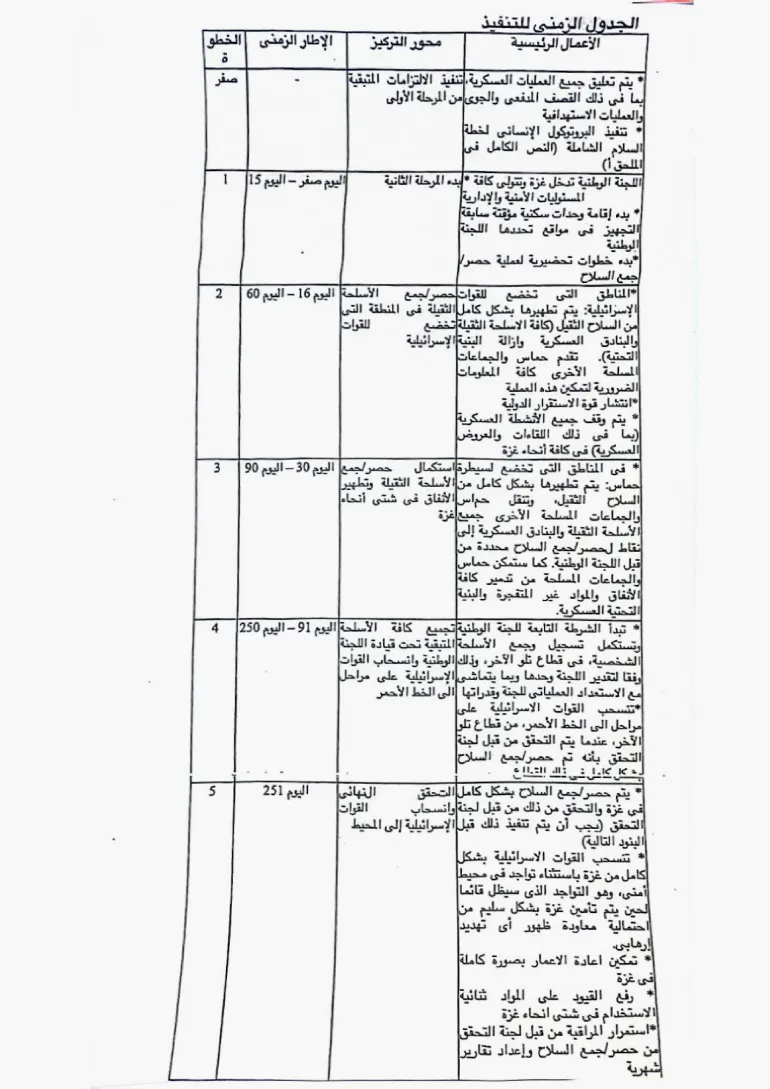 الجدول الزمنى للتنفيذ
الخطو
ة
الإطار الزمنى
محور التركيز
الأعمال الرئيسية
صفر
-
تنفيذ الالتزامات المتبقية
من المرحلة الأولى
* يتم تعليق جميع العمليات العسكرية،
بما فى ذلك القصف المدفعى والجوى
والعمليات الاستهدافية
* تنفيذ البروتوكول الإنسانى لخطة
السلام الشاملة (النص الكامل فى
الملحق أ)
1
اليوم صفر – اليوم 15
بدء المرحلة الثانية
* اللجنة الوطنية تدخل غزة وتتولى كافة
المسئوليات الأمنية والإدارية
* بدء إقامة وحدات سكنية مؤقتة سابقة
التجهيز فى مواقع تحددها اللجنة
الوطنية
*بدء خطوات تحضيرية لعملية حصر/
جمع السلاح
2
اليوم 16 – اليوم 60
حصر/جمع الأسلحة
الثقيلة فى المنطقة التى
تخضع للقوات
الإسرائيلية
*المناطق التى تخضع للقوات
الإسرائيلية: يتم تطهيرها بشكل كامل
من السلاح الثقيل (كافة الاسلحة الثقيلة
والبنادق العسكرية وازالة البنية
التحتية). تقدم حماس والجماعات
المسلحة الأخرى كافة المعلومات
الضرورية لتمكين هذه العملية
*انتشار قوة الاستقرار الدولية
* يتم وقف جميع الأنشطة العسكرية
(بما فى ذلك اللقاءات والعروض
العسكرية) فى كافة أنحاء غزة
3
اليوم 30 – اليوم 90
استكمال حصر/جمع
الأسلحة الثقيلة وتطهير
الأنفاق فى شتى أنحاء
غزة
* فى المناطق التى تخضع لسيطرة
حماس: يتم تطهيرها بشكل كامل من
السلاح الثقيل، وتنقل حماس
والجماعات المسلحة الأخرى جميع
الأسلحة الثقيلة والبنادق العسكرية إلى
نقاط لحصر/جمع السلاح محددة من
قبل اللجنة الوطنية. كما ستمكن حماس
والجماعات المسلحة من تدمير كافة
الأنفاق والمواد غير المتفجرة والبنية
التحتية العسكرية.
4
اليوم 91 – اليوم 250
تجميع كافة الأسلحة
المتبقية تحت قيادة اللجنة
الوطنية وانسحاب القوات
الإسرائيلية على مراحل
الى الخط الأحمر
* تبدأ الشرطة التابعة للجنة الوطنية
وتستكمل تسجيل وجمع الأسلحة
الشخصية، فى قطاع تلو الآخر، وذلك
وفقا لتقدير اللجنة وحدها وبما يتماشى
مع الاستعداد العملياتى للجنة وقدراتها
*تنسحب القوات الاسرائيلية على
مراحل الى الخط الأحمر، من قطاع تلو
الآخر، عندما يتم التحقق من قبل لجنة
التحقق بأنه تم حصر/جمع السلاح
بشكل كامل فى ذلك القطاع
5
اليوم 251
التحقق النهائى
وانسحاب القوات
الإسرائيلية إلى المحيط
* يتم حصر/جمع السلاح بشكل كامل
فى غزة والتحقق من ذلك من قبل لجنة
التحقق (يجب أن يتم تنفيذ ذلك قبل
البنود التالية)
* تنسحب القوات الاسرائيلية بشكل
كامل من غزة باستثناء تواجد فى محيط
أمنى، وهو التواجد الذى سيظل قائما
لحين يتم تأمين غزة بشكل سليم من
احتمالية معاودة ظهور أى تهديد
إرهابى.
* تمكين اعادة الاعمار بصورة كاملة
فى غزة
* رفع القيود على المواد ثنائية
الاستخدام فى شتى انحاء غزة
*استمرار المراقبة من قبل لجنة التحقق
من حصر/جمع السلاح وإعداد تقارير
شهرية